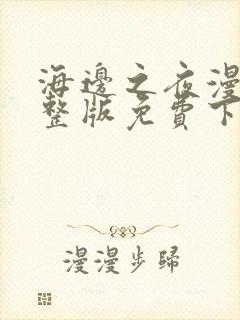 海邊之夜漫
整版免費下
漫漫步歸